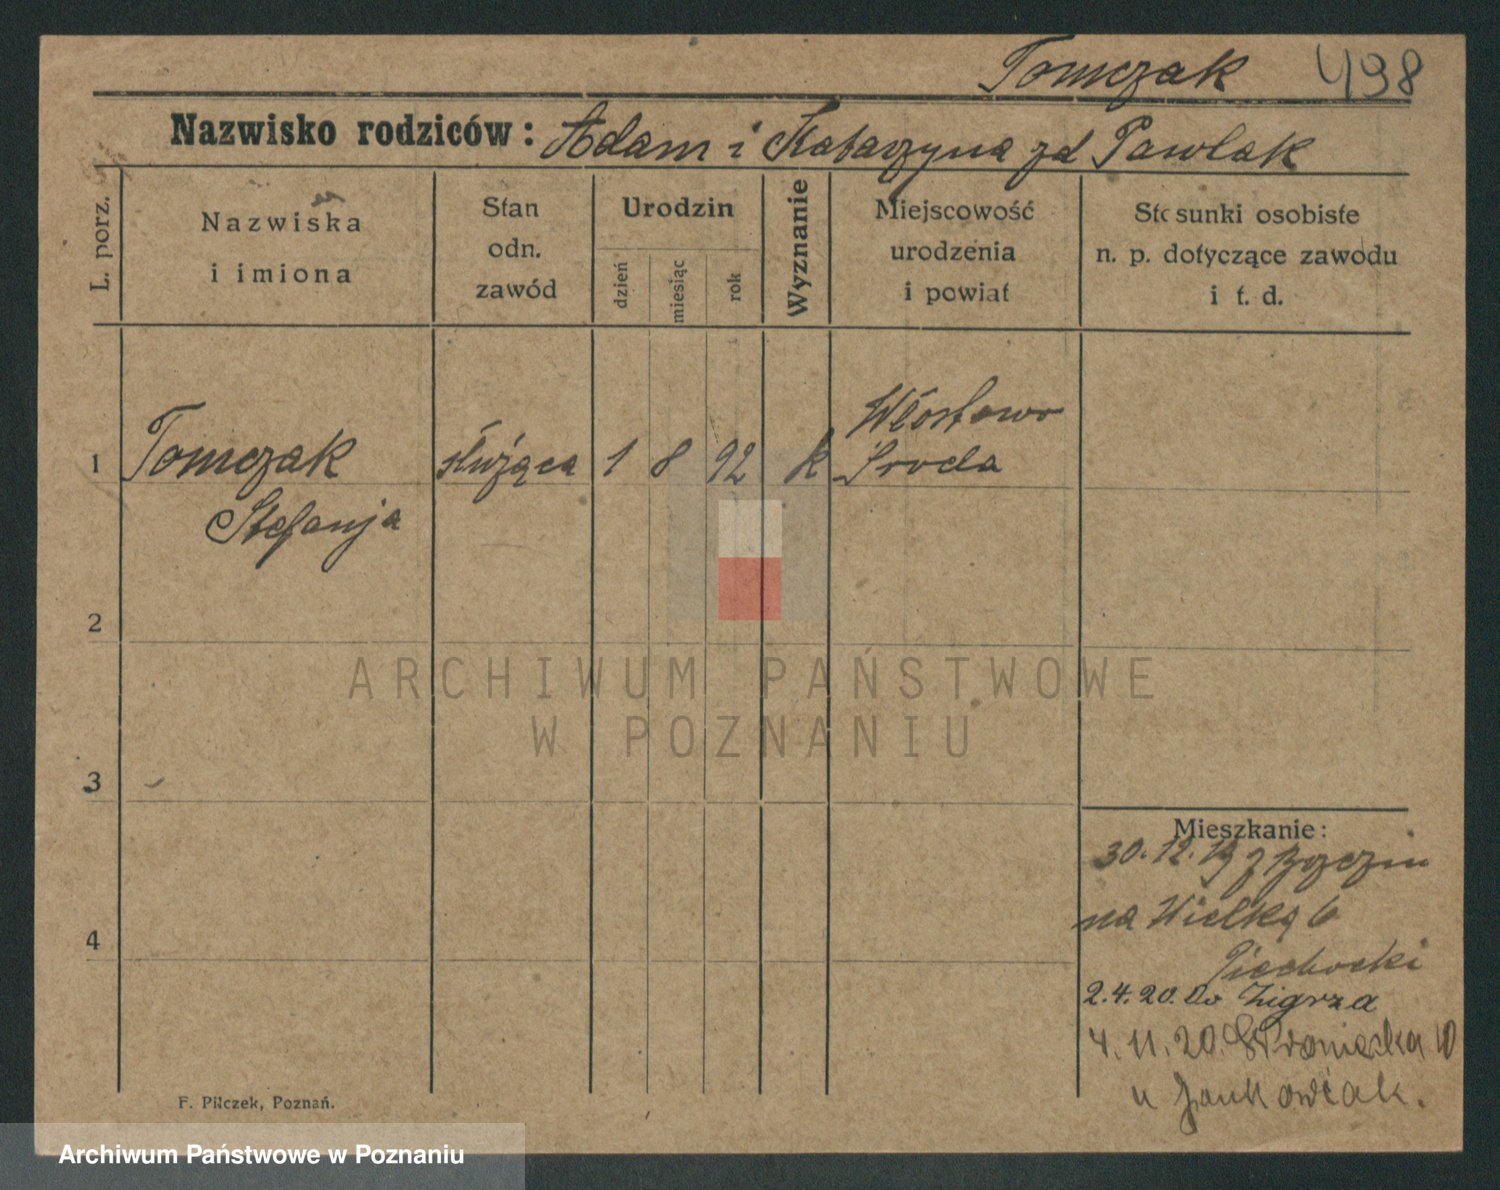 Tomczak 498
Nazwisko rodziców: Adam i Katarzyna zd Pawlak
L. porz.
Nazwiska
i imiona
Stan
odn.
zawód
Urodzin
dzień
miesiąc
rok
Wyznanie
Miejscowość
urodzenia
i powiat
Stosunki osobiste
n. p. dotyczące zawodu
i t. d.
1 Tomczak służąca 1 8 92 k Włostowo
Środa
Stefanja
2
ARCHIWUM PAŃSTWOWE
W POZNANIU
3
Mieszkanie:
30.12.19 z
na Wielką 6
4
Piechocki
2.4.20. do
4.11.20. 10
u Jankowiak.
F. Pilczek, Poznań.
Archiwum Państwowe w Poznaniu